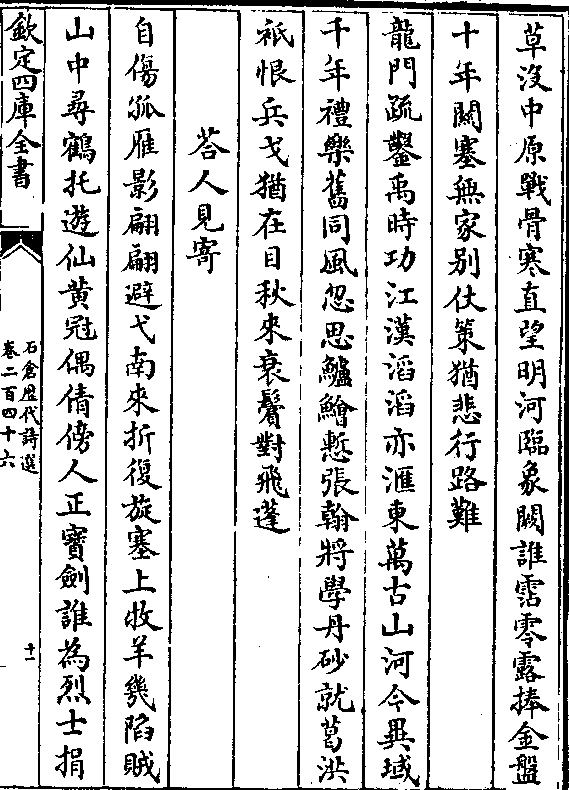 草沒中原戰骨寒直望明河臨象闕誰霑零露捧金盤
十年闗塞無家别仗策猶悲行路難
龍門疏鑿禹時功江漢滔滔亦滙東萬古山河今異域
千年禮樂舊同風忽思鱸鱠慙張翰將學丹砂就葛洪
祇恨兵戈猶在目秋來衰鬢對飛蓬
荅人見寄
自傷孤雁影翩翩避弋南來折復旋塞上牧羊幾陷賊
山中尋鶴托遊仙黄冠偶倩傍人正寶劍誰為烈士捐
欽定四庫全書
石倉歴代詩選
卷二百四十六
十一